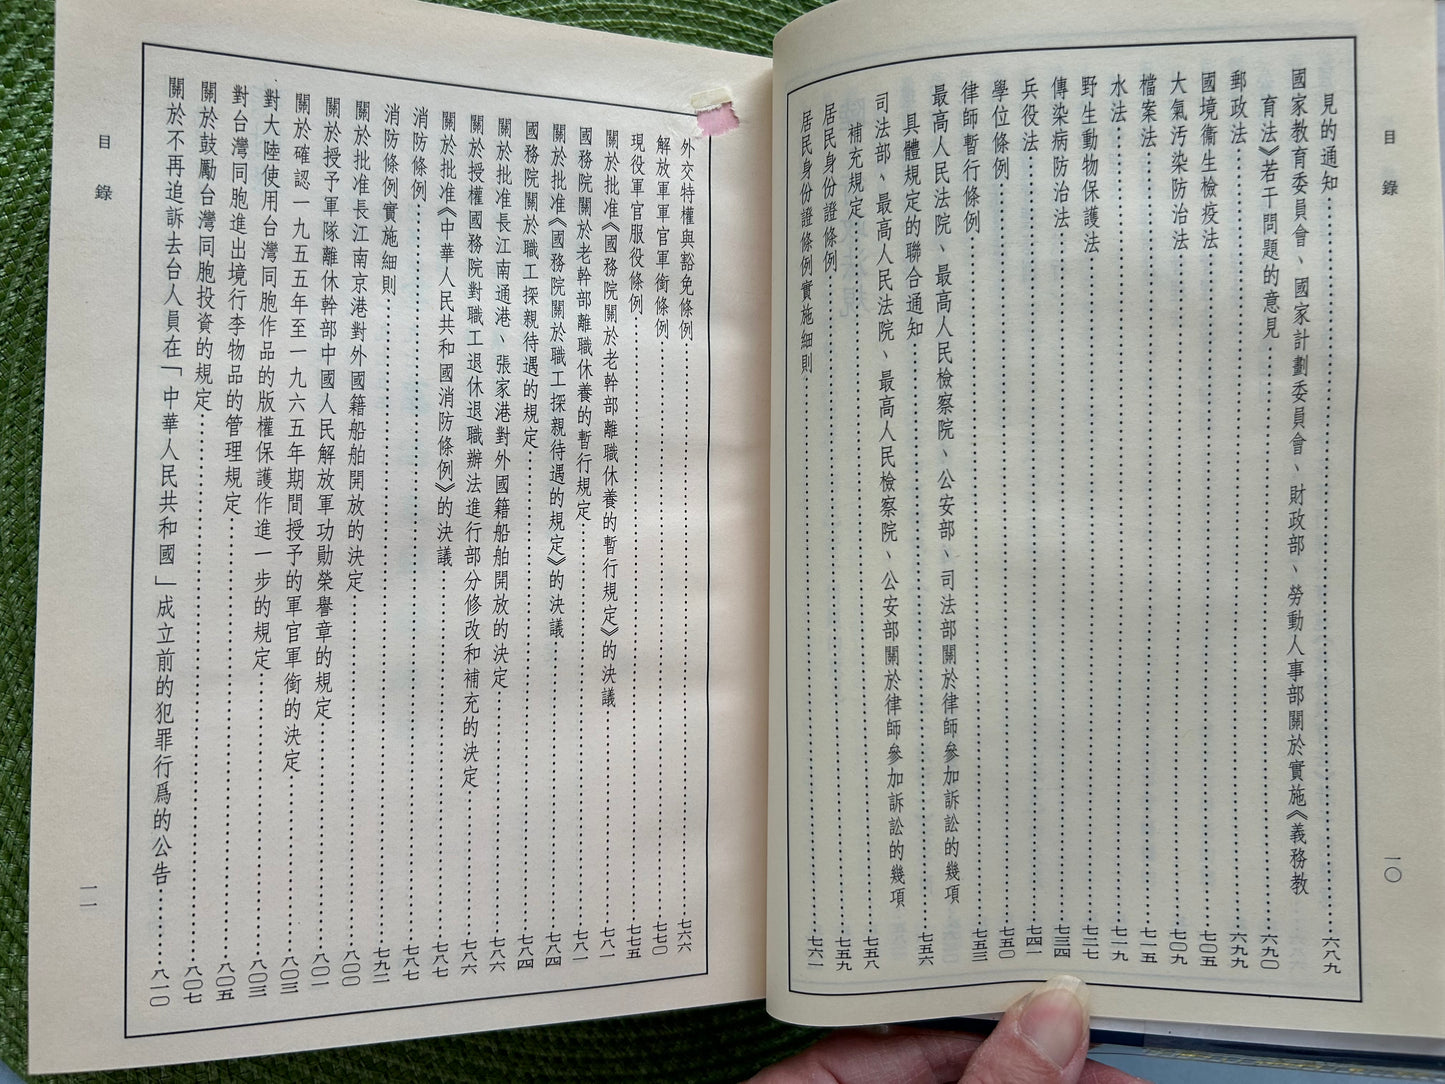 目錄
一〇
見的通知……六八九
國家教育委員會、國家計劃委員會、財政部、勞動人事部關於實施《義務教
育法》若干問題的意見……六九〇
郵政法……六九九
國境衞生檢疫法……七〇五
大氣污染防治法……七〇九
檔案法……七一五
水法……七一九
野生動物保護法……七二七
傳染病防治法……七三四
兵役法……七四一
學位條例……七五〇
律師暫行條例……七五三
最高人民法院、最高人民檢察院、公安部、司法部關於律師參加訴訟的幾項
具體規定的聯合通知……七五六
司法部、最高人民法院、最高人民檢察院、公安部關於律師參加訴訟的幾項
補充規定……七五八
居民身份證條例……七五九
居民身份證條例實施細則……七六一
外交特權與豁免條例……七六六
解放軍軍官軍銜條例……七七〇
現役軍官服役條例……七七五
關於批准《國務院關於老幹部離職休養的暫行規定》的決議……七八一
國務院關於老幹部離職休養的暫行規定……七八一
關於批准《國務院關於職工探親待遇的規定》的決議……七八四
國務院關於職工探親待遇的規定……七八四
關於批准長江南通港、張家港對外國籍船舶開放的決定……七八六
關於授權國務院對職工退休退職辦法進行部分修改和補充的決定……七八六
關於批准《中華人民共和國消防條例》的決議……七八七
消防條例……七八七
消防條例實施細則……七九二
關於批准長江南京港對外國籍船舶開放的決定……八〇〇
關於授予軍隊離休幹部中國人民解放軍功勛榮譽章的規定……八〇一
關於確認一九五五年至一九六五年期間授予的軍官軍銜的決定……八〇三
對大陸使用台灣同胞作品的版權保護作進一步的規定……八〇三
對台灣同胞進出境行李物品的管理規定……八〇五
關於鼓勵台灣同胞投資的規定……八〇七
關於不再追訴去台人員在「中華人民共和國」成立前的犯罪行爲的公告……八一〇
目錄
一一